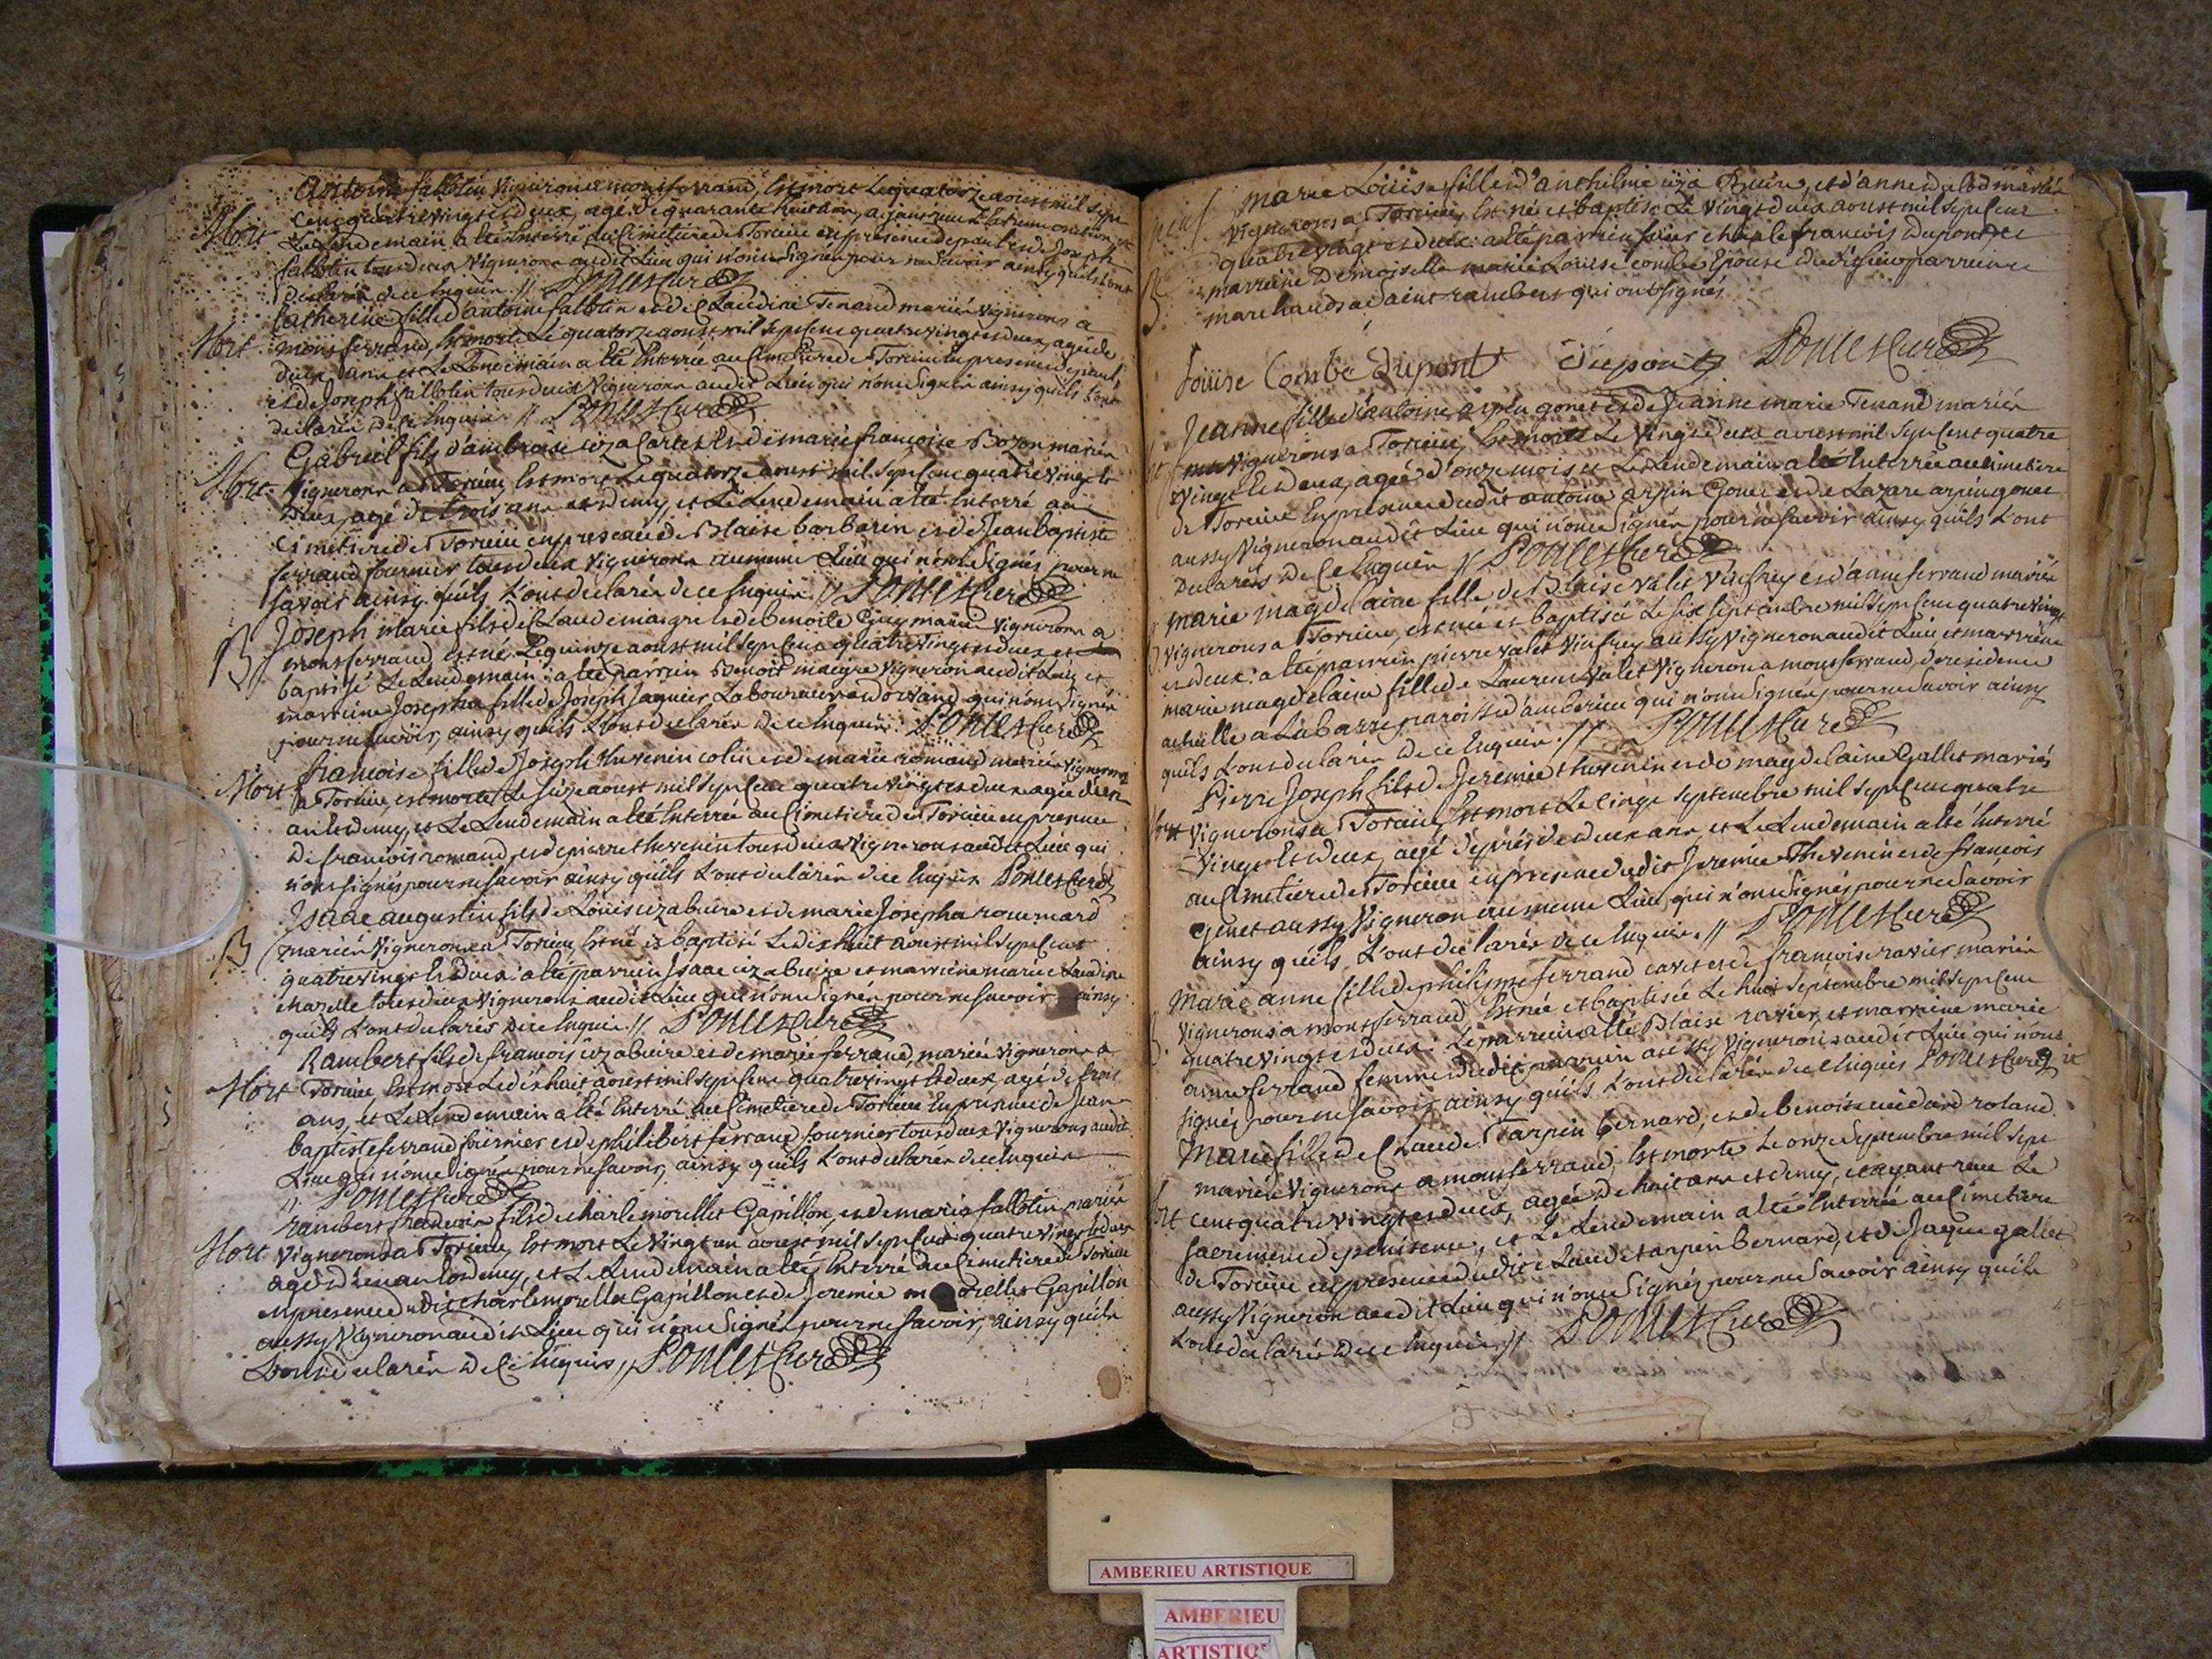 Antoine falblin vigneron a montferrand, Est mort Le quatorze aoust mil sept
cent quatre vingt et deux, agé de quarante huit ans, ayant receu L'extremonction, et
Mort
Le Lendemain a eté Enterré au Cimetiere de Torcieu en presence de paul et de Joseph
falblin tous deux Vignerons audit Lieu qui n'ont Signés pour ne Savoir ainsy quils L'ont
declarés de ce Enquis // Poncet Curé
Catherine fille d'antoine falblin et de Claudine Tenand mariés vignerons a
Mort
montferrand, Est morte Le quatorze aoust mil sept cent quatre vingt et deux, agée de
deux ans et Le Lendemain a eté Enterrée au Cimetiere de Torcieu En presence de paul
et de Joseph falblin tous deux Vignerons audit Lieu qui n'ont Signés ainsy quils L'ont
declarés de ce Enquis // Poncet Curé
Gabriel fils d'ambroise Et de marie françoise Bozon mariés
Mort
Vignerons a Torcieu, Est mort Le quatorze aoust mil sept cent quatre vingt et
deux, agé de trois ans et demy, et Le Lendemain a eté Enterré au
Cimetiere de Torcieu en presence de Blaise barbarin et de Jean Baptiste
ferrand fournier tous deux Vignerons au meme Lieu qui n'ont Signés pour ne
savoir ainsy quils L'ont declarés de ce Enquis // Poncet Curé
Joseph marie fils de Claude maigre et de benoite Guy mariés Vignerons a
B
montferrand, est né Le quinze aoust mil sept cent quatre vingt et deux et
baptisé Le Lendemain: a eté parrain Benoit maigre Vigneron audit Lieu et
marreine Josepha fille de Joseph Jaquier Laboureur a dorvand qui n'ont Signés
pour ne savoir, ainsy quils L'ont declarés de ce Enquis. Poncet Curé
françoise fille de Joseph thevenin colin et de marie romand mariés Vignerons
Mort
a Torcieu, est morte Le seize aoust mil sept cent quatre vingt et deux agée d'un
an et demy, et Le Lendemain a eté Enterrée au Cimetiere de Torcieu en presence
de francois romand, et de pierre thevenin tous deux Vignerons audit Lieu qui
n'ont signés pour ne savoir ainsy quils L'ont declarés de ce Enquis Poncet Curé
Isaac augustin fils de Louis uzabuire et de marie Josepha roumard
B
mariés Vignerons a Torcieu, Est né et baptisé Le dix huit aoust mil sept cent
quatre vingt Et deux: a eté parrain Isaac uzabuire et marreine marie Claudine
chazelle tous deux Vignerons audit Lieu qui n'ont Signés pour ne savoir ainsy
quils L'ont declarés de ce Enquis // Poncet Curé
Rambert fils de francois uzabuire et de marie ferrand, mariés Vignerons a
Mort
Torcieu, Est mort Le dix huit aoust mil sept cent quatre vingt Et deux, agé de trois
ans, et Le Lendemain a eté Enterré au Cimetiere de Torcieu En presence de Jean
baptiste ferrand fournier et de philibert ferrand fournier tous deux Vignerons audit
Lieu qui n'ont Signés pour ne savoir, ainsy quils L'ont declarés de ce Enquis
// Poncet Curé
rambert francois fils de charle morellet Gapillon, et de marie falblin mariés
Mort
Vignerons a Torcieu, Est mort Le Vingt un aoust mil sept cent quatre vingt et deux
agé d'un an et demy, et Le Lendemain a eté Enterré au Cimetiere de Torcieu
en presence dudit charle morellet Gapillon et de Jeremie morellet Gapillon
aussy Vigneron audit Lieu qui n'ont Signés pour ne savoir, ainsy quils
L'ont declarés de ce Enquis // Poncet Curé
marie Loüise fille d'anthelme et d'anne mariés
vignerons a Torcieu, Est née et baptisée Le Vingt deux aoust mil sept cent
quatre vingt et deux: a eté parrain sieur charle francois Dupont et
B
marreine Demoiselle marie Louise combe Epouse dudit sieur parrein
marchands a Saint rambert qui ont signés
Loüise Combe Dupont Dupont Poncet Curé
Jeanne fille d'antoine arpin gonet et de Jeanne marie Tenand mariés
Vignerons a Torcieu, Est morte Le Vingt deux aoust mil sept cent quatre
vingt Et deux, agée d'onze mois et Le Lendemain a eté Enterrée au Cimetiere
de Torcieu En presence dudit antoine arpin Gonet et de Lazare arpin gonet
aussy Vigneron audit Lieu qui n'ont Signés pour ne savoir ainsy quils L'ont
Declarés de ce Enquis // Poncet Curé
marie magdelaine fille de Blaise valet Vinfrey et d'anne ferrand mariés
vignerons a Torcieu, est née et baptisée Le six septembre mil sept cent quatre vingt
et deux: a eté parrein pierre valet Vinfrey aussy Vigneron audit Lieu et marreine
marie magdelaine fille de Laurent Valet Vigneron a montferrand, de residence
actuelle a La barre paroisse d'amberieu qui n'ont Signés pour ne Savoir ainsy
quils L'ont declarés de ce Enquis // Poncet Curé
Pierre Joseph fils de Jeremie thevenin et de magdelaine Gallet mariés
Vignerons a Torcieu, Est mort Le cinq Septembre mil sept cent quatre
Vingt Et deux, agé d'eprés de deux ans, et Le Lendemain a eté Enterré
au Cimetiere de Torcieu en presence dudit Jeremie Thevenin et de francois
Genet aussy Vigneron au meme Lieu, qui n'ont Signés pour ne Savoir
ainsy quils L'ont declarés de ce Enquis. // Poncet Curé
Marie anne fille de philippe ferrand cavet et de francoise ravier mariés
vignerons a montferrand, Est née et baptisée Le huit Septembre mil sept cent
quatre vingt et deux: Le parrein a eté Blaise ravier, et marreine marie
anne ferrand femme dudit parrain aussy Vignerons audit Lieu qui n'ont
signés pour ne savoir ainsy quils L'ont declarés de ce Enquis Poncet Curé
Marie fille de Claude Tarpin bernard, et de benoite roland
mariés Vignerons a montferrand, Est morte Le onze Septembre mil sept
cent quatre vingt et deux, agée de huit ans et demy, et ayant receu Le
sacrement de penitence, et Le Lendemain a eté Enterrée au Cimetiere
de Torcieu en presence dudit Claude tarpin bernard, et de Jaque gallet
aussy Vigneron audit Lieu qui n'ont Signés pour ne Savoir ainsy quils
L'ont declarés de ce Enquis // Poncet Curé
AMBERIEU ARTISTIQUE
AMBERIEU
ARTISTIQ